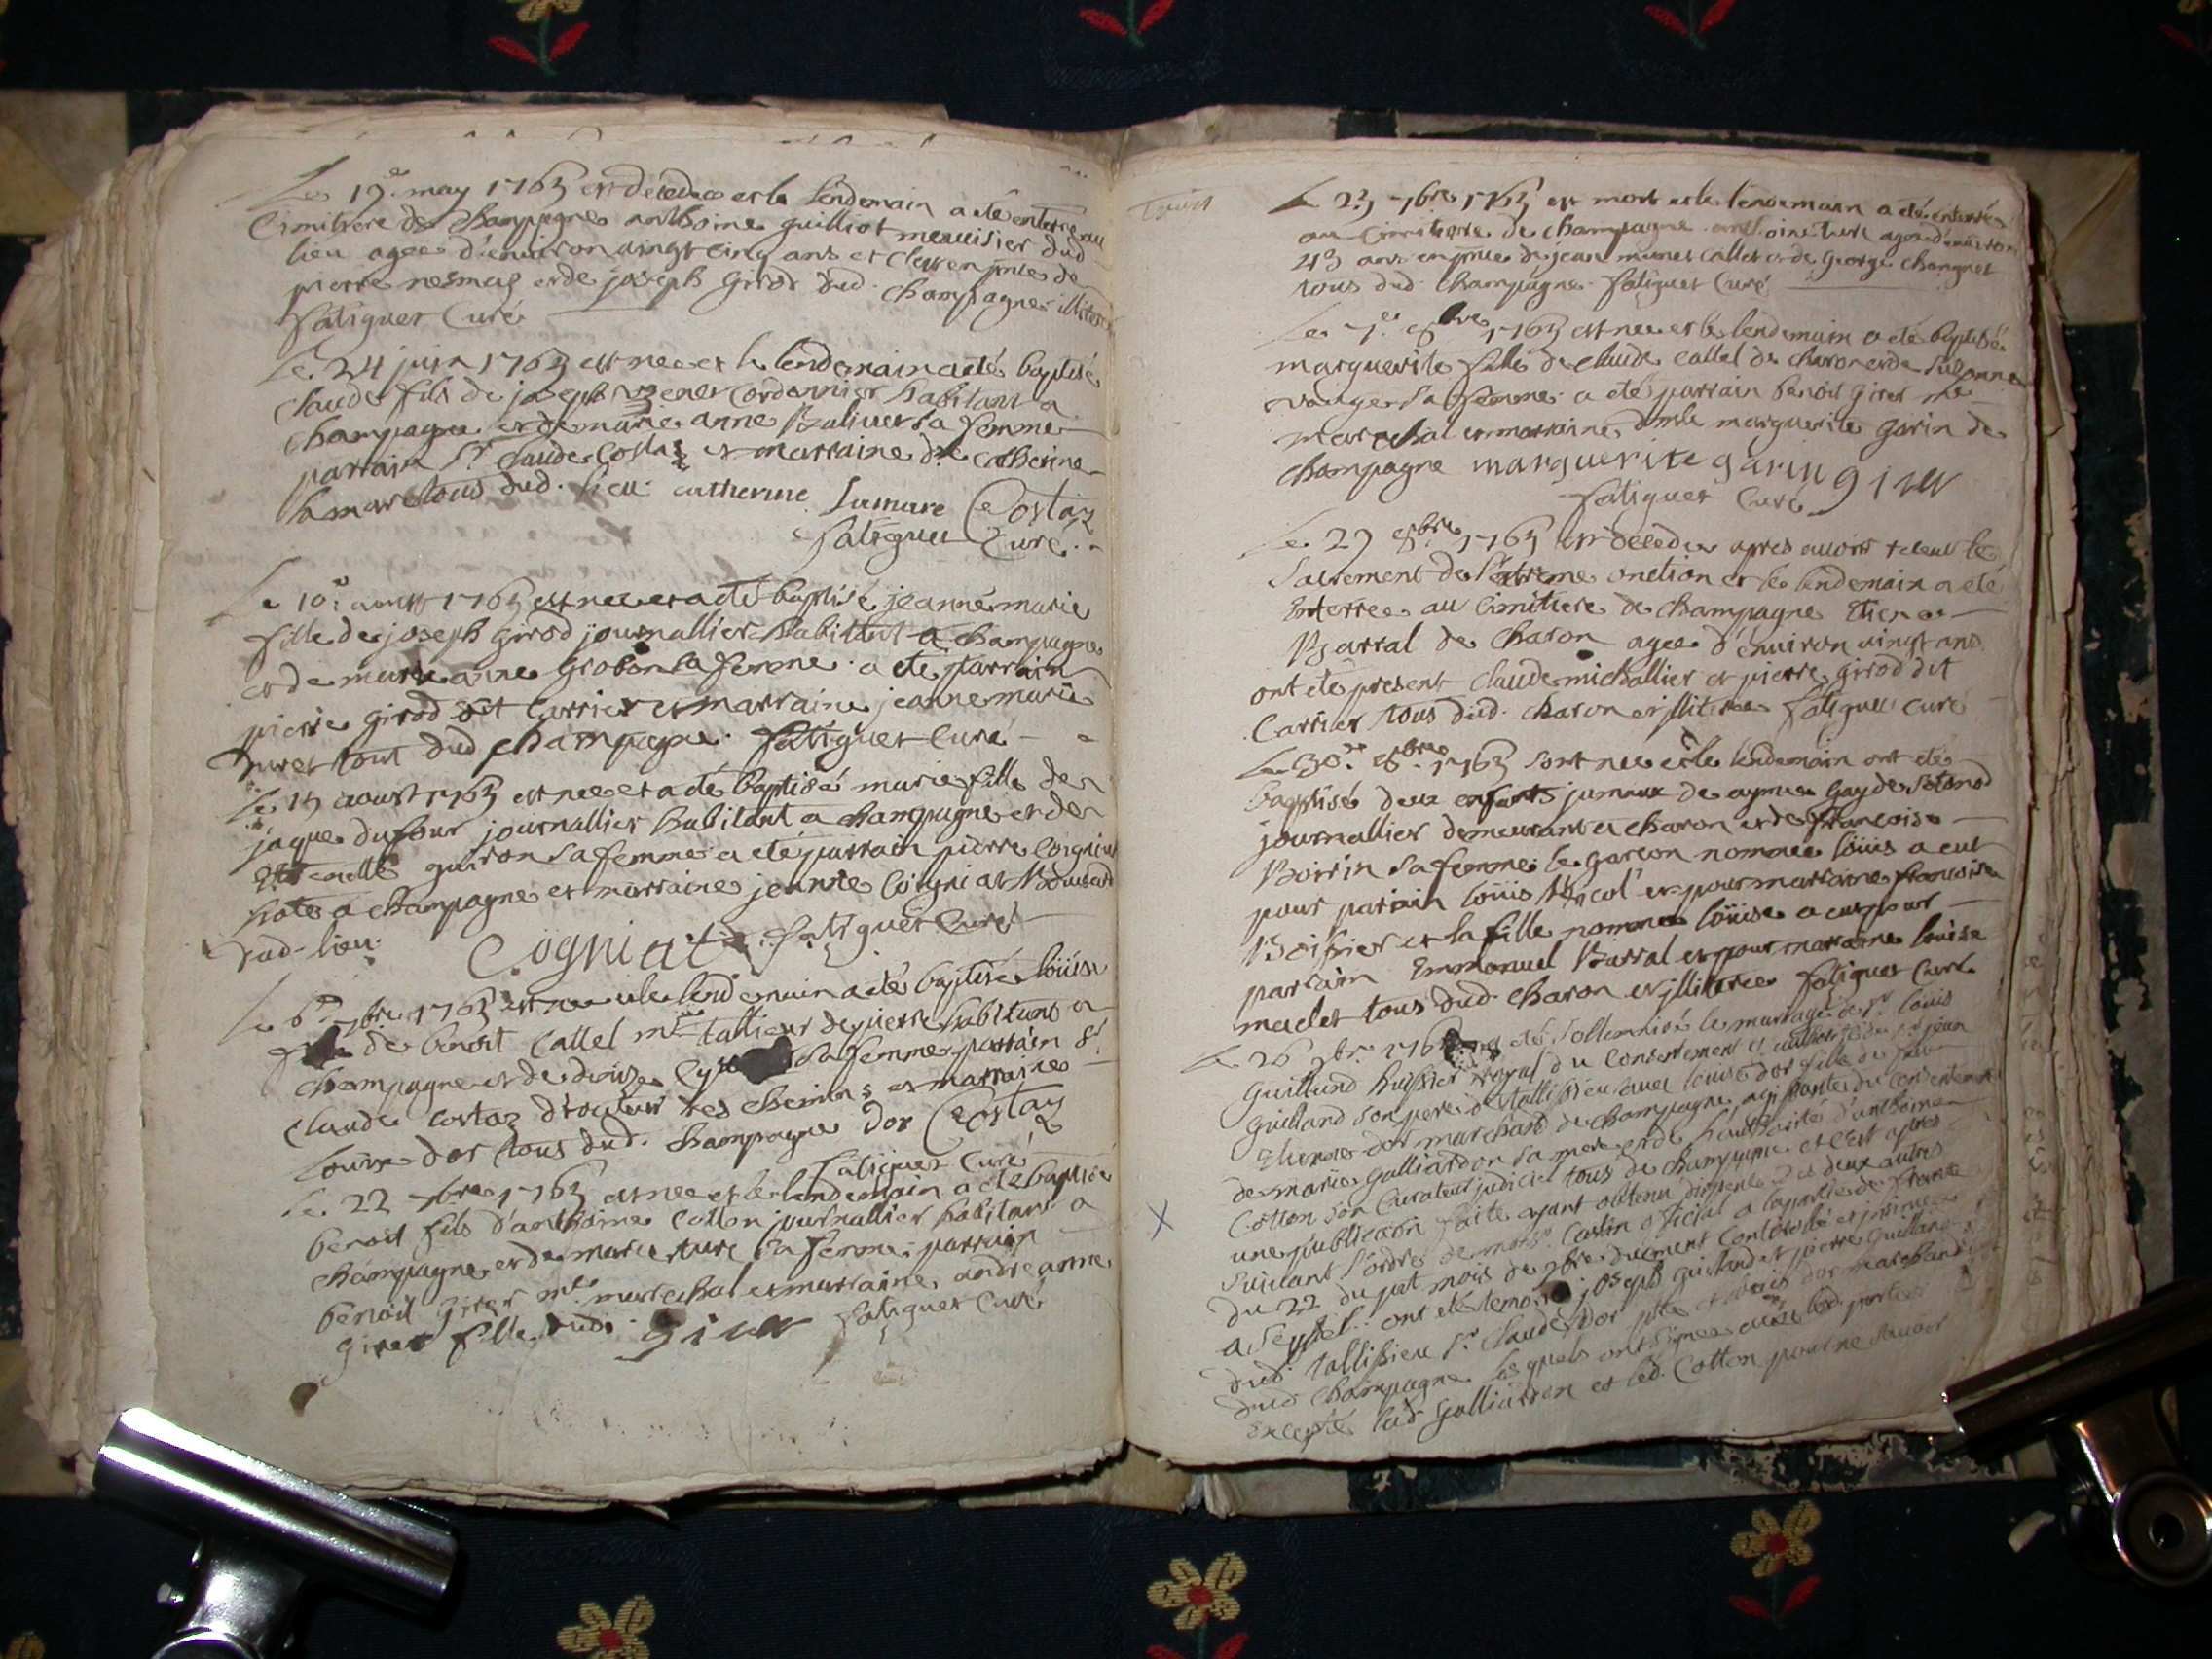 Le 19e may 1763 est decedee et le lendemain a eté enterré au
Cimitiere de Champagne anthoine guilliot menuisier dud
lieu agee d'environ vingt cinq ans et c'est en pnce de
pierre nesmoz et de joseph Girod dud. Champagne illiteres
fatiguet Curé
Le 24 juin 1763 est nee et le lendemain a eté baptisé
Claude fils de joseph Cordonnier habitant a
Champagne et de marie anne sa femme
parrain Sr Claude Costaz et marraine dle Catherine
lamare tous dud. lieu. catherine Lamare Costaz
fatiguet Curé
Le 10e aoust 1763 est nee et a eté baptisé jeanne marie
fille de joseph Girod journallier habitant a Champagne
et de marie anne grobon sa femme a eté parrain
pierre girod dit Carrier et marraine jeanne marie
turet tout dud Champagne. fatiguet Curé
Le 15 aoust 1763 est nee et a eté baptisé marie fille de
jaque dufour journallier habitant a Champagne et de
guiron sa femme a eté parrain pierre Coigniat
hote a Champagne et marraine jeanne Coigniat
dud. lieu. Cögniat fatiguet Curé
Le 6e 7bre 1763 est nee et le lendemain a eté baptisé loüise
de benoit Callet me tallieur de pierre habitant a
Champagne et de sa femme parrain Sr
Claude Costaz des chemins et marraine
Louise dor tous dud. Champagne Dor Costaz
fatiguet Curé
Le 22 7bre 1763 est nee et le lendemain a eté baptisé
benoit fils d'anthoine Cotton journallier habitant a
Champagne et de marie ture sa femme. parrain
benoit giret me marechal et marraine andreanne
giret fille dud. giret fatiguet Curé
Le 23 7bre 1763 est mort et le lendemain a eté enterré
au Cimitiere de Champagne anthoine ture agee d'environ
43 ans en pnce de jean Callet et de George Changuet
tous dud. Champagne. fatiguet Curé
Le 7e 8bre 1763 est nee et le lendemain a eté baptisé
marguerite fille de claude Callet de charon et de Susanne
sa femme. a eté parrain benoit Giret me
marechal et marraine dmlle marguerite garin de
Champagne marguerite garin giret
fatiguet Curé
Le 29 8bre 1763 est decedee apres avoir receut le
Sacrement de l'extreme onction et le lendemain a eté
enterree au Cimitiere de Champagne
Barral de Charon agee d'environ vingt ans
ont eté present Claude michallier et pierre girod dit
Carrier tous dud. Charon et illiteree fatiguet Curé
Le 30e 8bre 1763 sont nee et le lendemain ont eté
baptisé deux enfants jumeaux de aymee Gay de Sotonod
journallier demeurant a Charon et de françoise
sa femme le garcon nommee loüis a eut
pour parrain loüis et pour marraine francoise
et la fille nommee loüise a eut pour
parrain Emmanuel Barral et pour marraine loüise
maclet tous dud. Charon et illiteree fatiguet Curé
Le 26 9bre 1763 eté sollemnisé le mariage de Sr loüis
Guilland huissier royal du consentement et authorité de Sr jean
Guilland son pere de tallissieu avec louise dor fille de feu
dor marchand de Champagne agissante du consentement
de marie Galliardon sa mere et de l'authorité d'anthoine
Cotton son Curateur judiciel tous de Champagne et c'est apres
une publication faite ayant obtenu dispense des deux autres
suivant l'ordre de monsr official a la partie de France
du 22 du pnt mois de 9bre duement Controolé et
a Seyssel. ont eté temoins joseph guilland et pierre guilland
dud. tallissieu Sr Claude dor marchand
dud Champagne lesquels ont signee avec les parties
Excepté lad Galliardon et led. Cotton pour ne scavoir